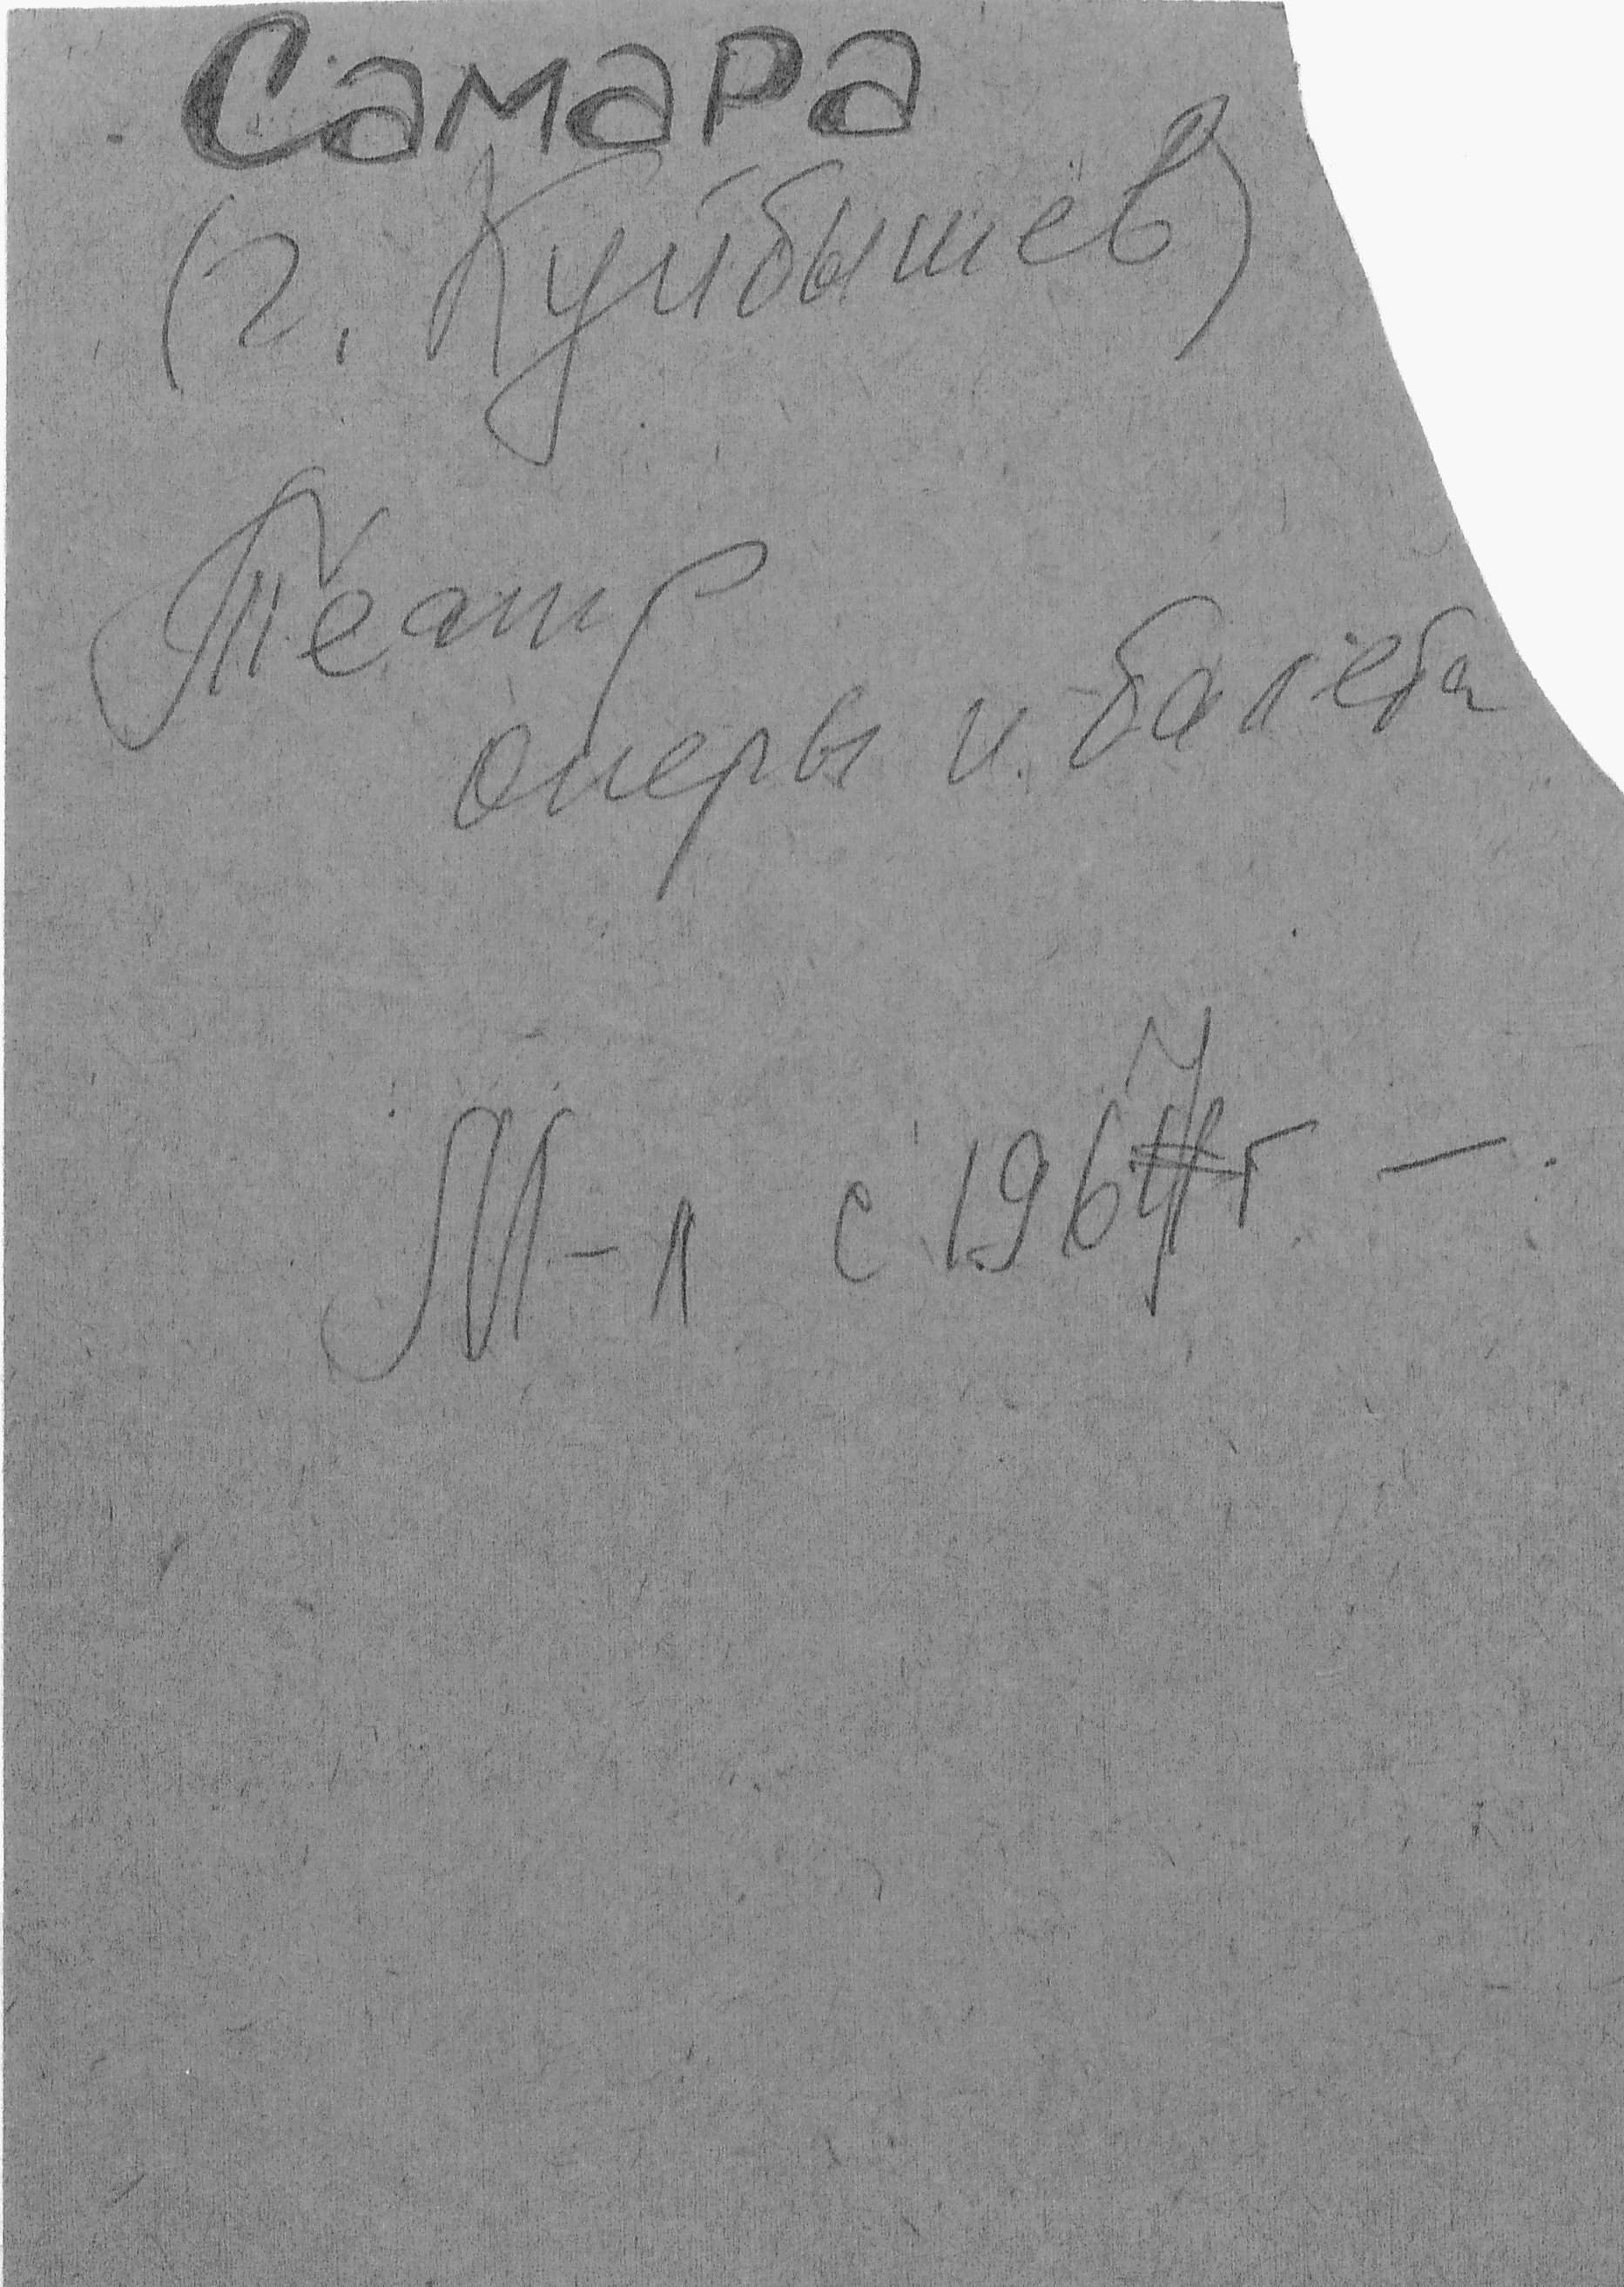 Самара
(г. Куйбышев)
Театр
оперы и балета
М-л с 1967г –